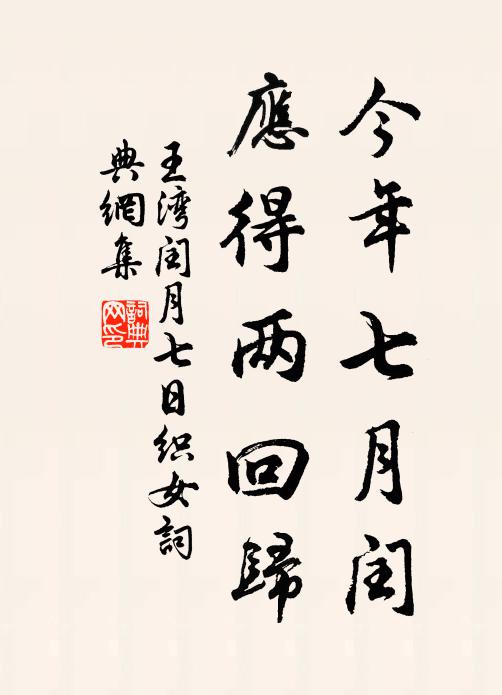 今年七月闰
應得两回歸
王湾闰月七日织女詞
典網集
詞典网印